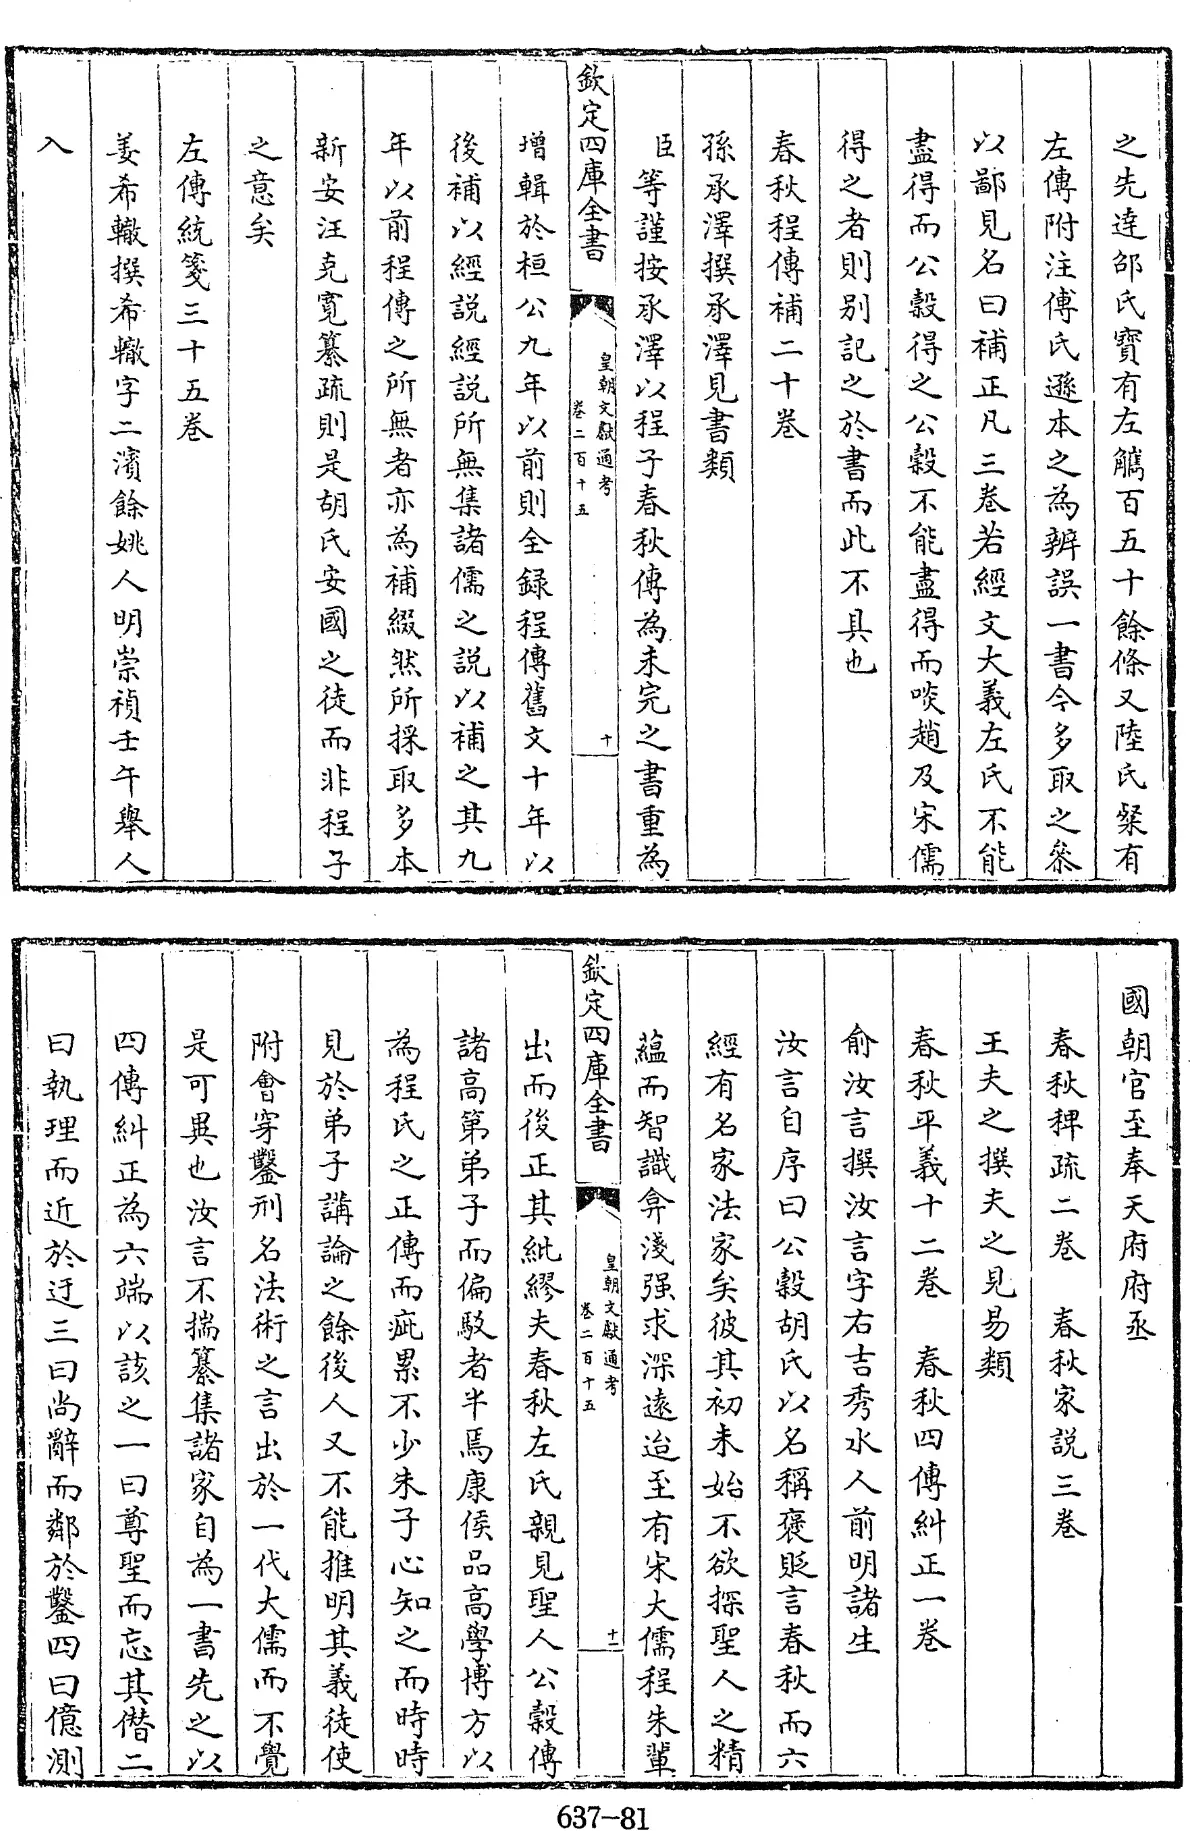 之先達邵氏寶有左觿百五十餘條又陸氏粲有
左傳附注傅氏遜本之為辨誤一書今多取之叅
以鄙見名曰補正凡三卷若經文大義左氏不能
盡得而公穀得之公穀不能盡得而啖趙及宋儒
得之者則别記之於書而此不具也
春秋程傳補二十卷
孫承澤撰承澤見書類
臣等謹按承澤以程子春秋傳為未完之書重為
欽定四庫全書
皇朝文獻通考
卷二百十五
十
增輯於桓公九年以前則全録程傳舊文十年以
後補以經説經説所無集諸儒之説以補之其九
年以前程傳之所無者亦為補綴然所採取多本
新安汪克寛纂疏則是胡氏安國之徒而非程子
之意矣
左傳統箋三十五卷
姜希轍撰希轍字二濱餘姚人明崇禎壬午舉人
入
國朝官至奉天府府丞
春秋稗疏二卷　春秋家説三卷
王夫之撰夫之見易類
春秋平義十二卷　春秋四傳糾正一卷
俞汝言撰汝言字右吉秀水人前明諸生
汝言自序曰公穀胡氏以名稱褒貶言春秋而六
經有名家法家矣彼其初未始不欲探聖人之精
藴而智識弇淺强求深遠迨至有宋大儒程朱輩
欽定四庫全書
皇朝文獻通考
卷二百十五
十一
出而後正其紕繆夫春秋左氏親見聖人公穀傳
諸高第弟子而偏駁者半焉康侯品高學博方以
為程氏之正傳而疵累不少朱子心知之而時時
見於弟子講論之餘後人又不能推明其義徒使
附會穿鑿刑名法術之言出於一代大儒而不覺
是可異也汝言不揣纂集諸家自為一書先之以
四傳糾正為六端以該之一曰尊聖而忘其僭二
曰執理而近於迂三曰尚辭而鄰於鑿四曰億測
637-81